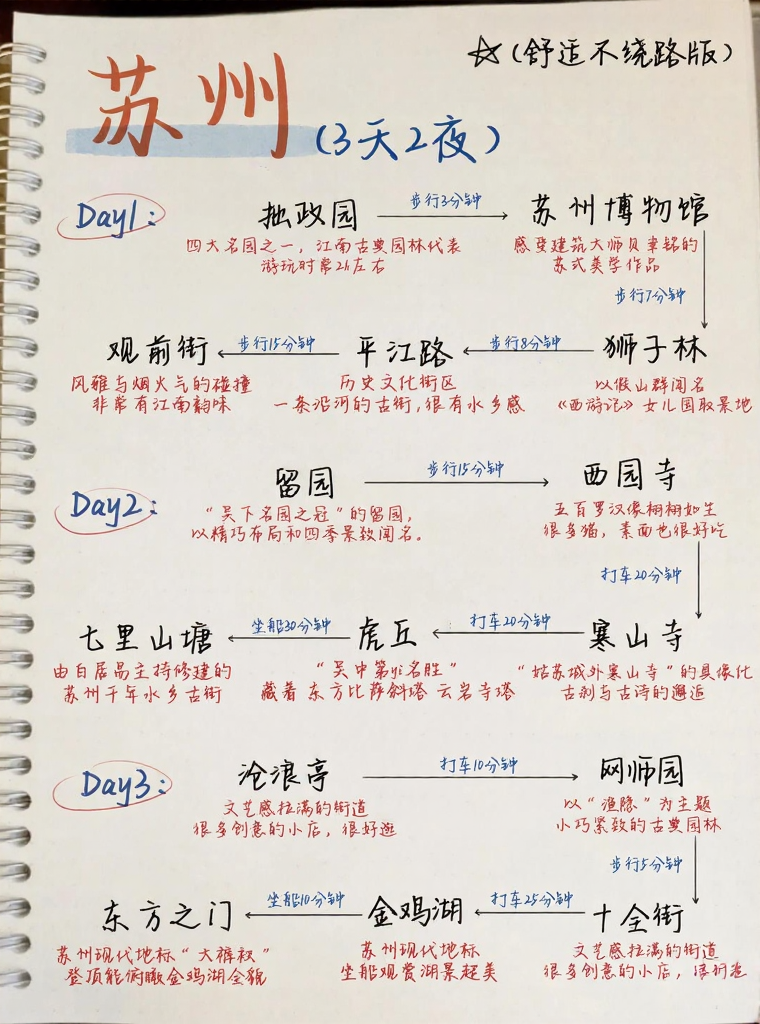 ☆(舒适不绕路版)
苏州
(3天2夜)
Day1:
拙政园
步行3分钟
苏州博物馆
四大名园之一，江南古典园林代表
游玩时常2h左右
感受建筑大师贝聿铭的
苏式美学作品
步行7分钟
狮子林
步行8分钟
平江路
步行15分钟
观前街
以假山群闻名
《西游记》女儿国取景地
历史文化街区
一条沿河的古街，很有水乡感
风雅与烟火气的碰撞
非常有江南韵味
Day2:
留园
步行15分钟
西园寺
“吴下名园之冠”的留园，
以精巧布局和四季景致闻名。
五百罗汉像栩栩如生
很多猫，素面也很好吃
打车20分钟
寒山寺
打车20分钟
虎丘
坐船30分钟
七里山塘
“姑苏城外寒山寺”的具像化
古刹与古诗的邂逅
“吴中第 名胜”
藏着 东方比萨斜塔 云岩寺塔
由白居易主持修建的
苏州千年水乡古街
Day3:
沧浪亭
打车10分钟
网师园
文艺感拉满的街道
很多创意的小店，很好逛
以“渔隐”为主题
小巧紧致的古典园林
步行5分钟
十全街
打车25分钟
金鸡湖
坐船10分钟
东方之门
文艺感拉满的街道
很多创意的小店，
苏州现代地标
坐船观赏湖景超美
苏州现代地标“大裤衩”
登顶能俯瞰金鸡湖全貌